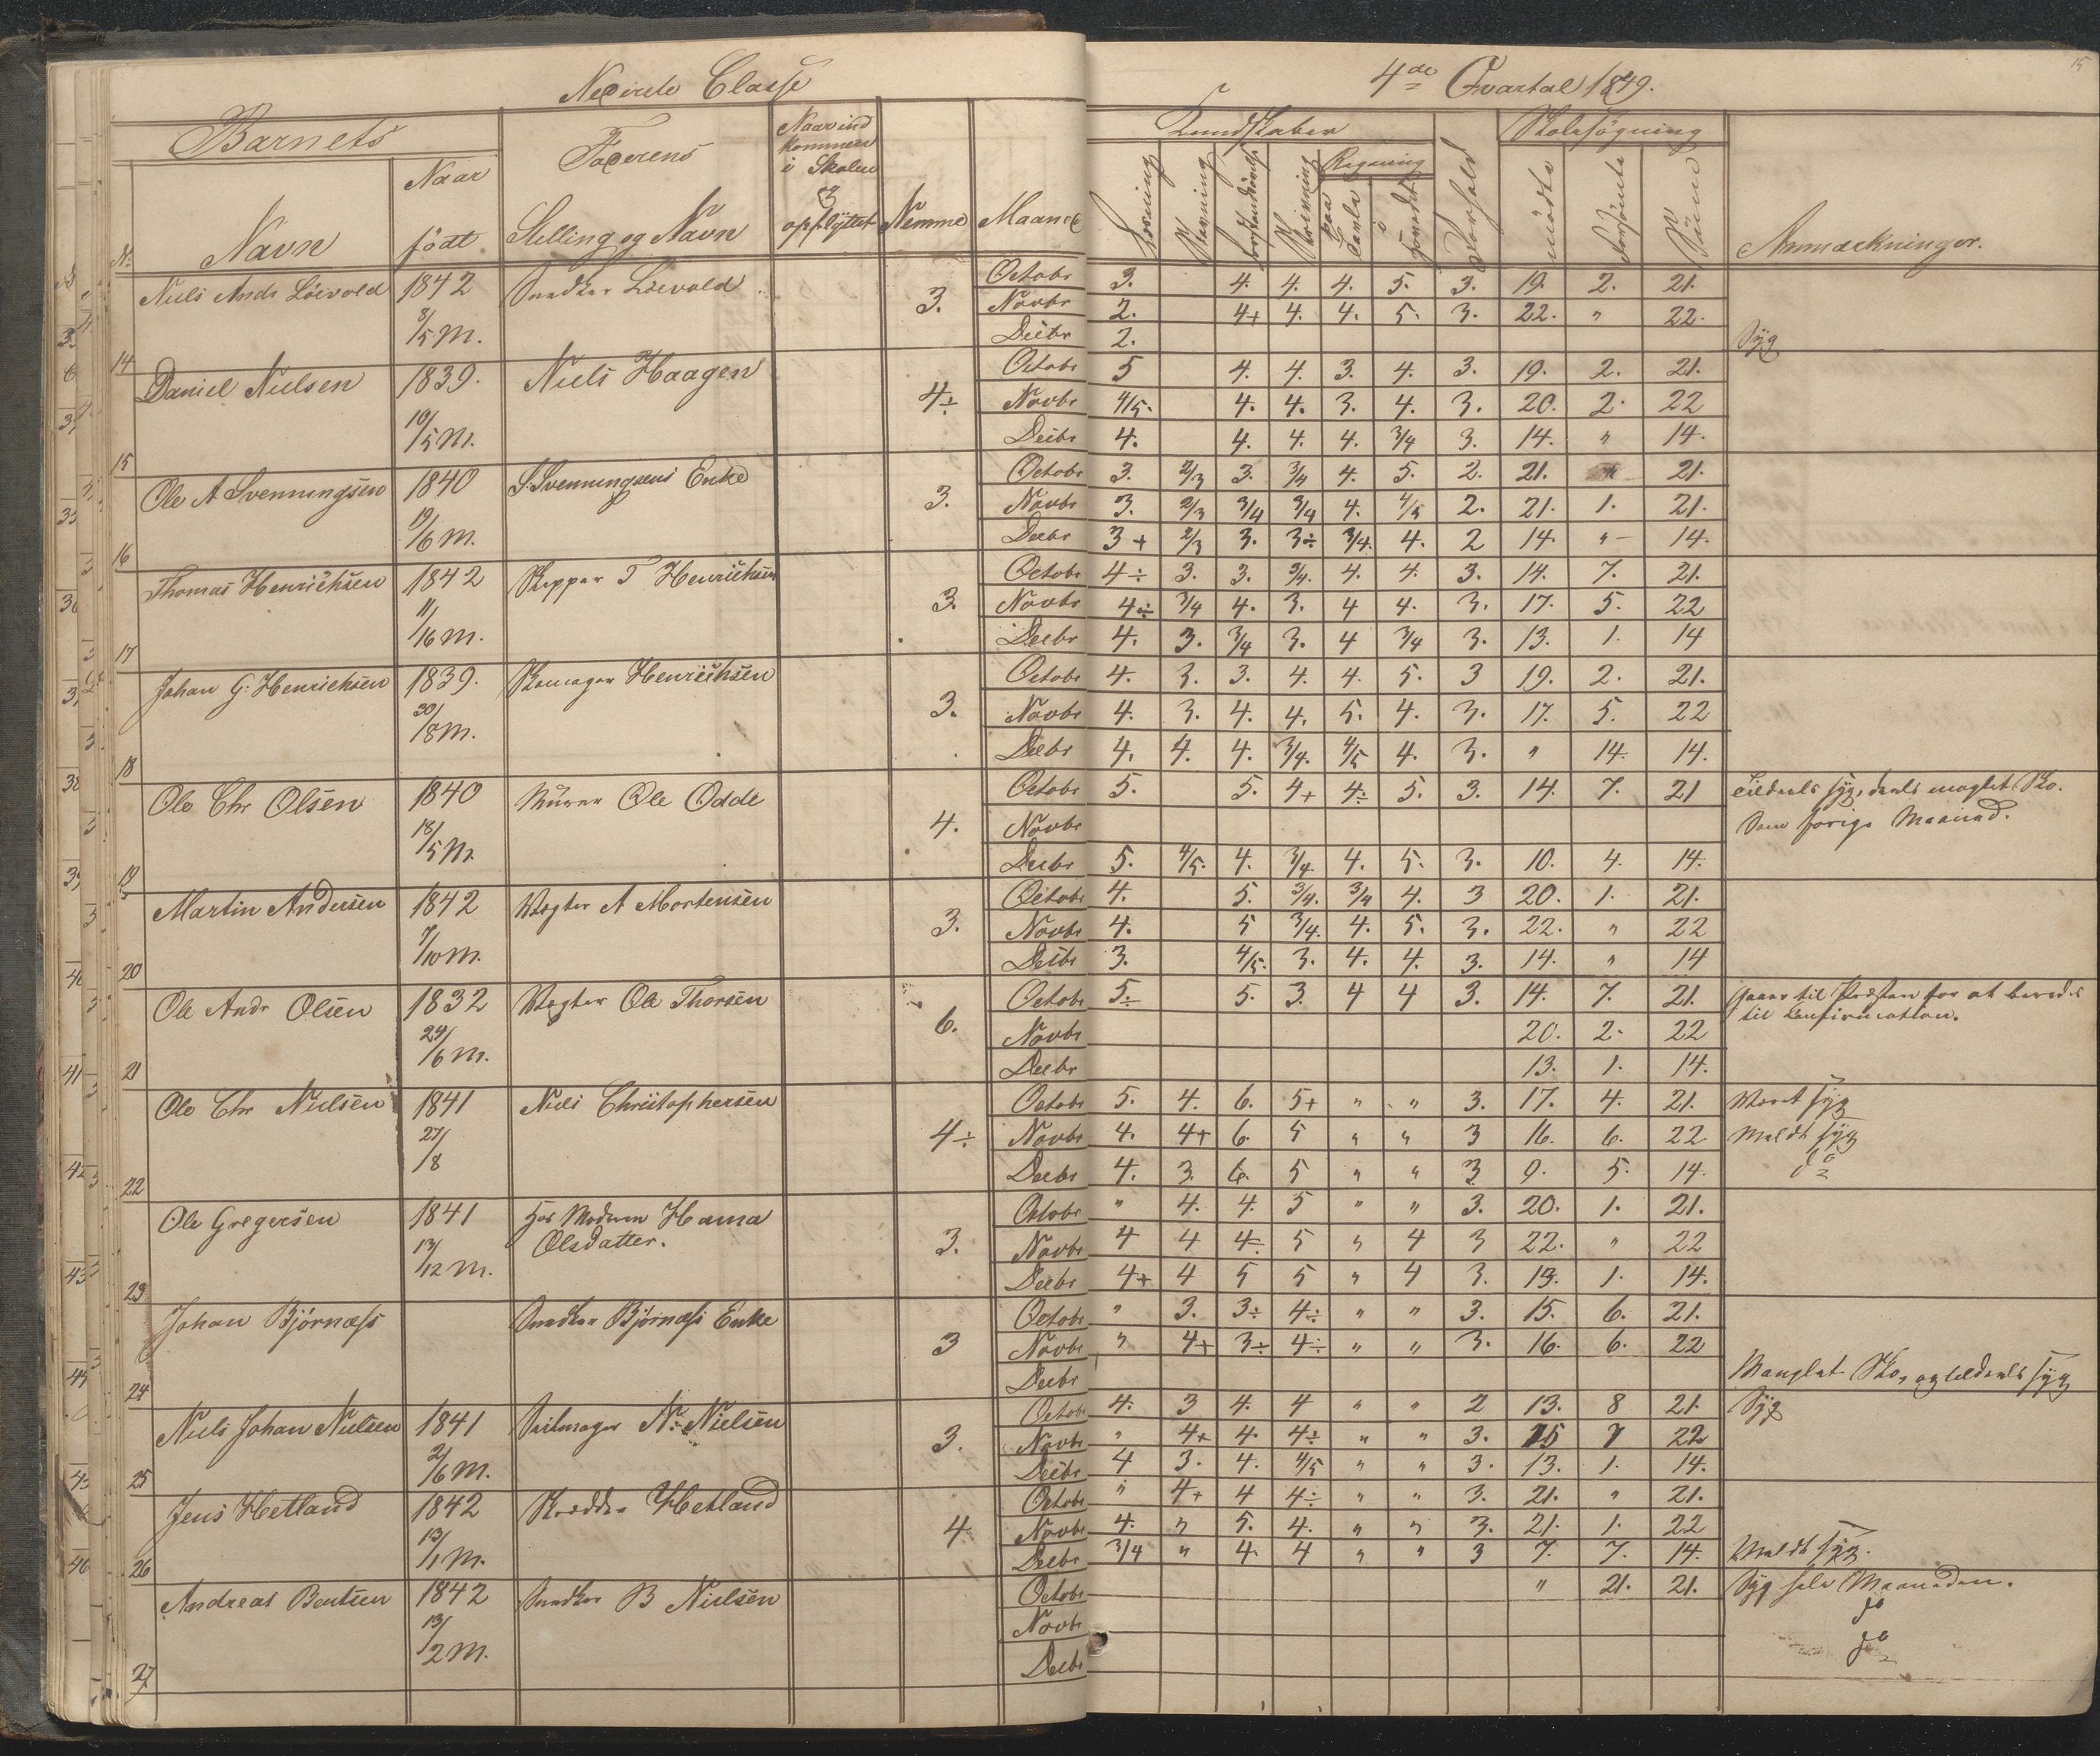 Nederste Classe
4de Qvartal 1849.
15
Barnets
Faderens
Naar ind
kommen
i Skolen
&
opflyttet
Nemme
Maaned
Kundskaber
Skolesøgning
Anmærkninger.
No
Navn
Naar
født
Stilling og Navn
Læsning
Skrivning
Regning
paa
Tavle
i
Hovedet
Forhold
mødte
forsømte
Niels Andr Löevold 1842 Snedker Löevold 3. Octobr 3. 4. 4. 4. 5. 3. 19. 2. 21.
8/5 M. Novbr 2. 4+ 4. 4. 5. 3. 22. " 22.
14 Decbr 2. Syg
Daniel Nielsen 1839. Niels Haagen 4÷ Octobr 5 4. 4. 3. 4. 3. 19. 2. 21.
10/5 M. Novbr 4/5. 4. 4. 3. 4. 3. 20. 2. 22
15 Decbr 4. 4. 4. 4. 3/4 3. 14. " 14.
Ole A Svenningsen 1840 S. Svenningsens Enke 3. Octobr 3. 2/3 3. 3/4 4. 5. 2. 21. 21.
19/6 M. Novbr 3. 2/3 3/4 3/4 4. 4/5 2. 21. 1. 21.
16 Decbr 3+ 2/3 3. 3÷ 3/4. 4. 2 14. " 14.
Thomas Henrichsen 1842 Skipper T Henrichsen 3. Octobr 4÷ 3. 3. 3/4. 4. 4. 3. 14. 7. 21.
11/16 M. Novbr 4÷ 3/4 4. 3. 4 4. 3. 17. 5. 22
17 Decbr 4. 3. 3/4 3. 4 3/4 3. 13. 1. 14
Johan G: Henrichsen 1839. Skomager Henrichsen 3. Octobr 4. 3. 3. 4. 4. 5. 3 19. 2. 21.
30/8 M. Novbr 4. 3. 4. 4. 5. 4. 3. 17. 5. 22
18 Decbr 4. 4. 4. 3/4. 4/5 4. 3. " 14. 14.
Ole Chr Olsen 1840 Murer Ole Odde 4. Octobr 5. 5. 4+ 4÷ 5. 3. 14. 7. 21 tildeels syg, deels manglet Sko.
18/5 M. Novbr Som forige Maaned.
19 Decbr 5. 4/5. 4. 3/4. 4. 5. 3. 10. 4. 14.
Martin Andersen 1842 Vægter A Mortensen 3. Octobr 4. 5. 3/4. 3/4 4. 3 20. 1. 21.
7/10 M. Novbr 4. 5 3/4. 4. 5. 3. 22. " 22
20 Decbr 3. 4/5. 3. 4. 4. 3. 14. " 14
Ole Andr Olsen 1832 Vægter Ole Thorsen 6. Octobr 5÷ 5. 3. 4 4 3. 14. 7. 21. gaaer til Præsten for at beredes
til Confirmation.
24/6 M. Novbr 20. 2. 22
21 Decbr 13. 1. 14.
Ole Chr Nielsen 1841 Niels Christophersen 4÷ Octobr 5. 4. 6. 5+ " " 3. 17. 4. 21. Været syg
27/8 Novbr 4. 4+ 6. 5 " " 3 16. 6. 22. Meldt syg
22 Decbr 4. 3. 6. 5 " " 3 9. 5. 14. do
Ole Gregersen 1841 Hos Moderen Hanna
Olsdatter. 3. Octobr " 4. 4. 5 " " 3. 20. 1. 21.
13/12 M. Novbr 4 4 4÷ 5 " 4 3 22. " 22
23 Decbr 4+ 4 5 5 " 4 3. 13. 1. 14.
Johan Bjørnæss Snedker Bjørnæss Enke 3 Octobr " 3. 3÷ 4÷ " " 3. 15. 6. 21.
Novbr " 4+ 3÷ 4÷ " " 3. 16. 6. 22
24 Decbr Manglet Sko, og tildeels syg
Niels Johan Nielsen 1841 Seilmager N: Nielsen 3. Octobr 4. 3 4. 4 " " 2 13. 8 21. Syg
2/6 M. Novbr " 4+ 4. 4÷ " " 3. 15 7 22
25 Decbr 4 3. 4. 4/5 " " 3. 13. 1. 14.
Jens Hetland 1842 Skredder Hetland 4. Octobr " 4+ 4 4÷ " " 3. 21. " 21.
13/1 M. Novbr 4. " 5. 4. " " 3. 21. 1. 22
26 Decbr 3/4 " 4. 4 " " 3 7. 7. 14. Meldt syg.
Andreas Bentsen 1842 Snedker B Nielsen Octobr " 21. 21. Syg hele Maaneden.
13/2 M. Novbr do
27 Decbr do